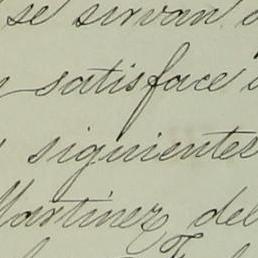 se sirvan
satisface
siguientes
Martinez del